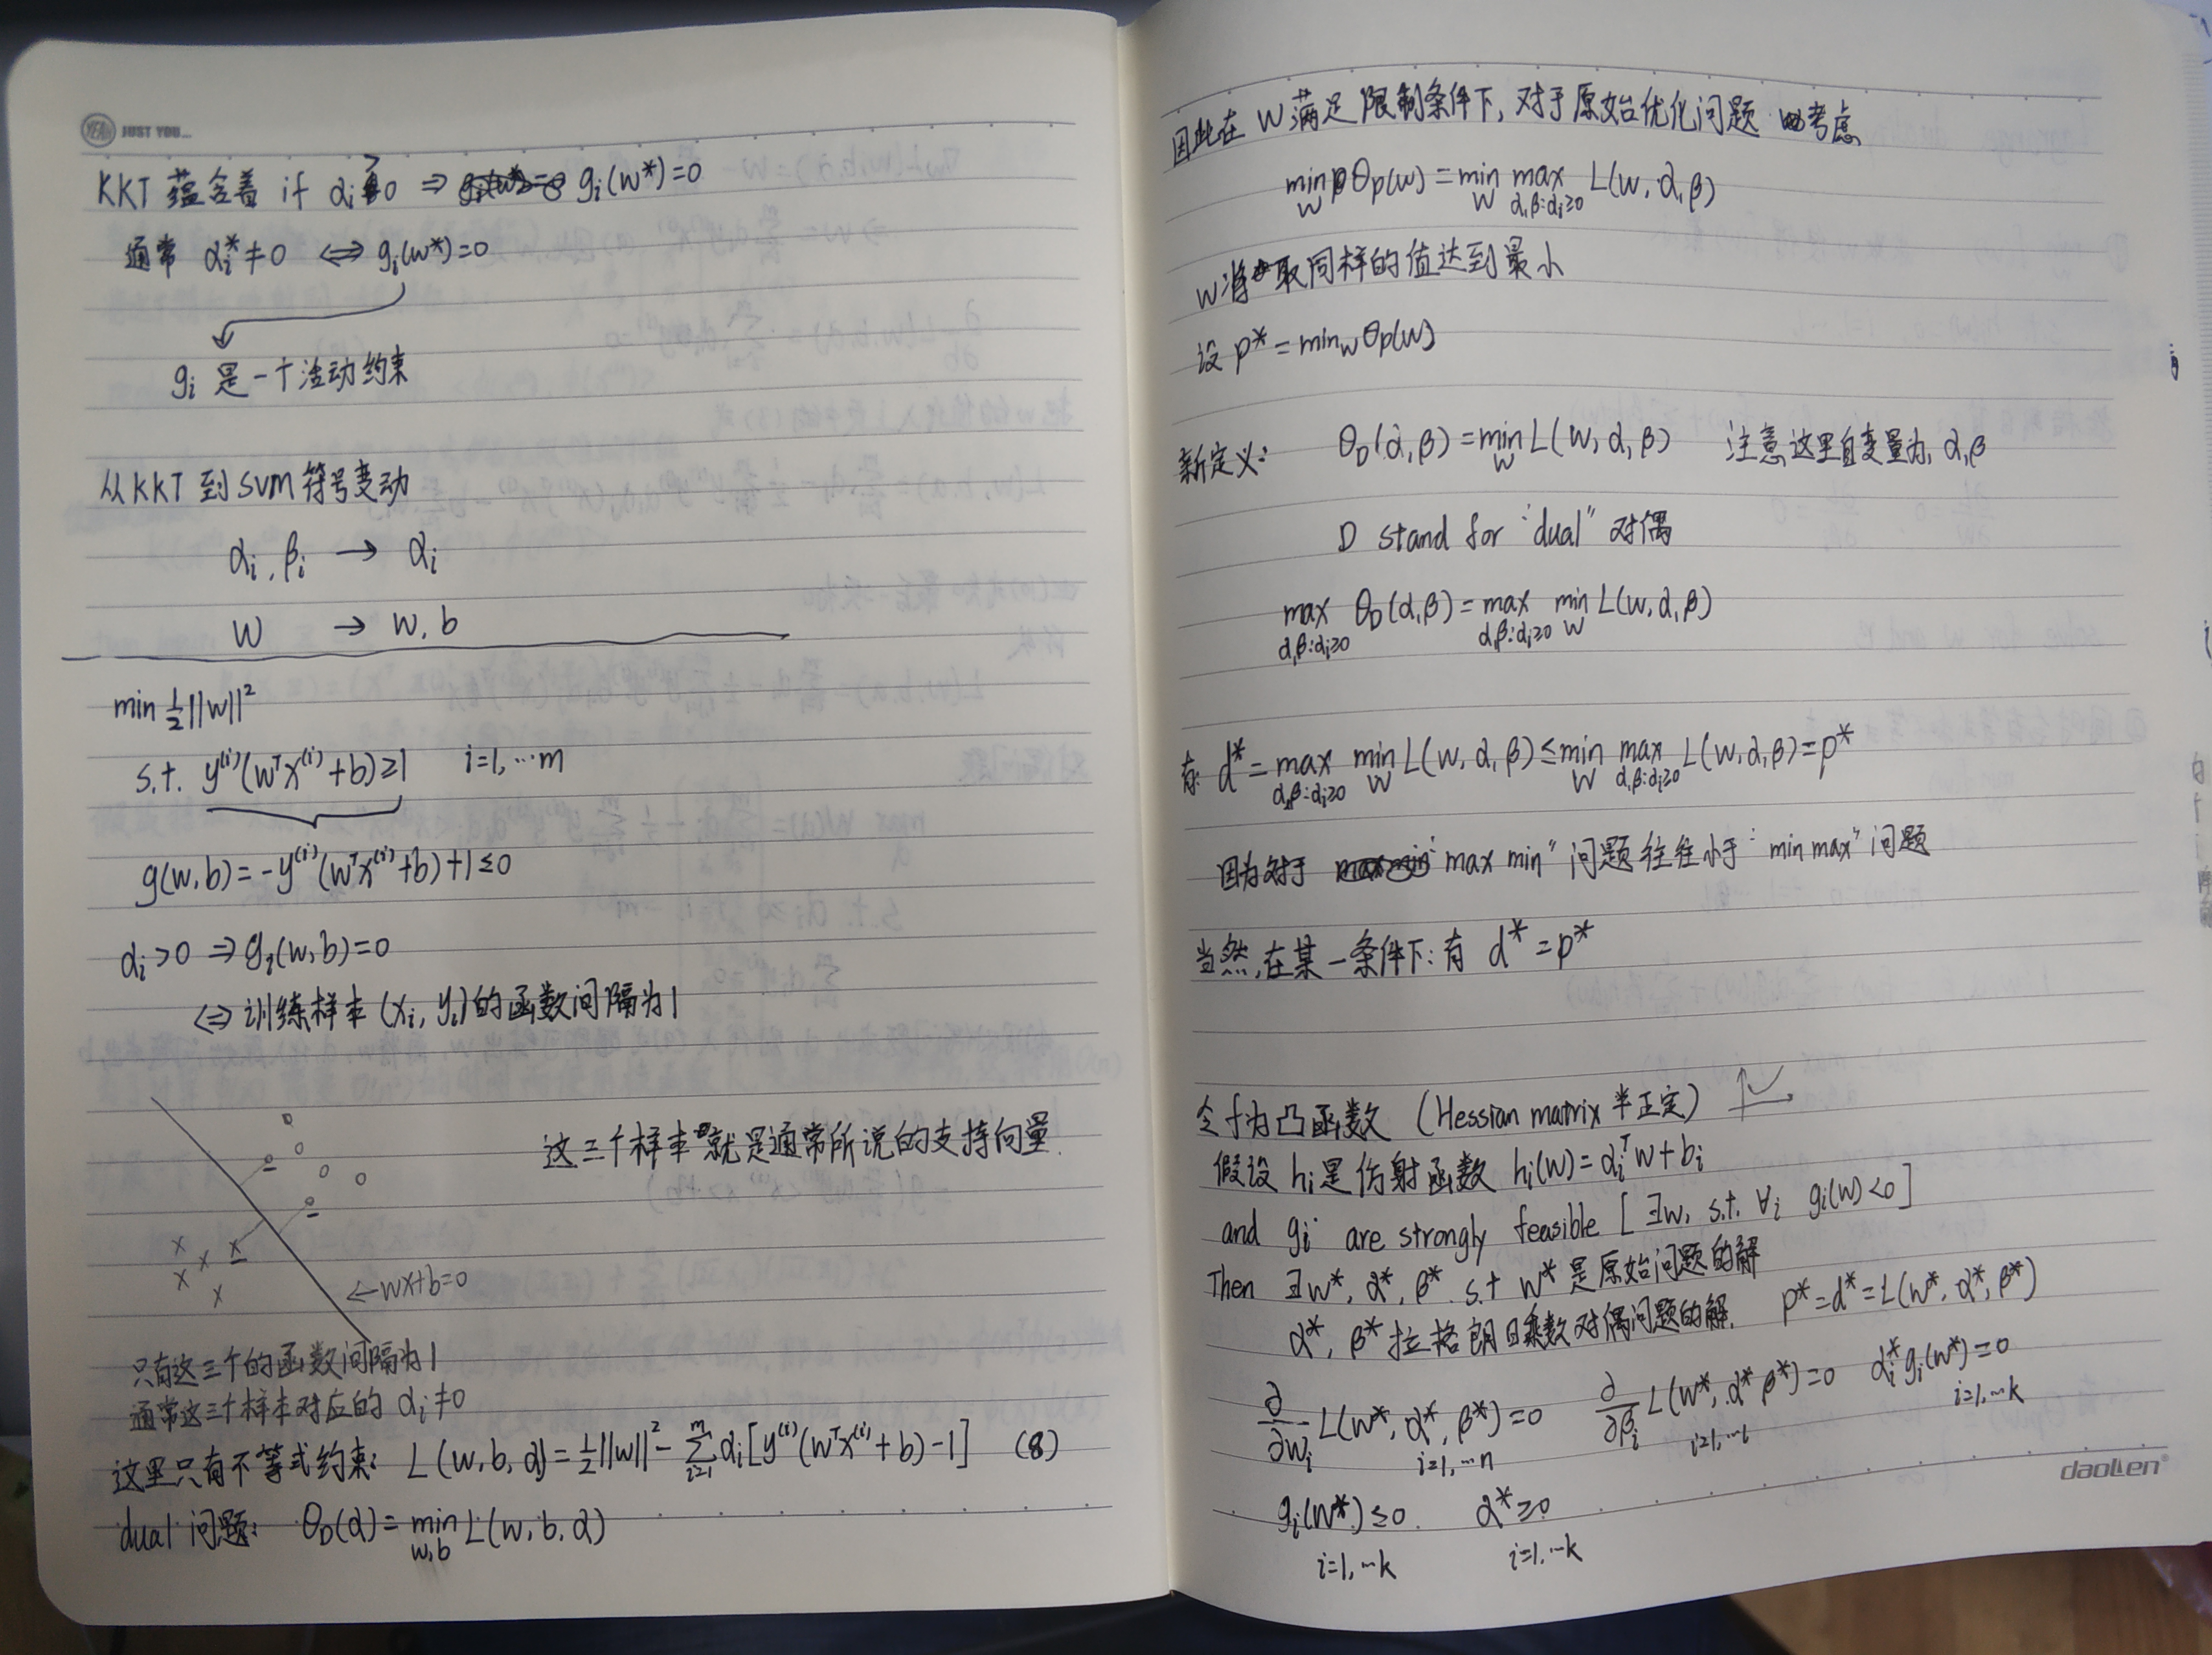 YEAH JUST YOU...
KKT 蕴含着 if αi>0 ⇒ gi(w*)=0
通常 αi*≠0 ⇔ gi(w*)=0
gi 是一个活动约束
从KKT 到 SVM 符号变动
αi, βi → αi
W → w, b
min ½||w||²
s.t. y⁽ⁱ⁾(wᵀx⁽ⁱ⁾+b)≥1 i=1,…m
g(w,b)=-y⁽ⁱ⁾(wᵀx⁽ⁱ⁾+b)+1≤0
αi>0 ⇒ gi(w,b)=0
⇔ 训练样本(xi, yi)的函数间隔为1
这三个样本就是通常所说的支持向量.
← wx+b=0
只有这三个的函数间隔为1
通常这三个样本对应的 αi≠0
这里只有不等式约束: L(w,b,α)=½||w||²-∑ᵢ₌₁ᵐ αi[y⁽ⁱ⁾(wᵀx⁽ⁱ⁾+b)-1] (8)
dual 问题: θD(α)=min w,b L(w,b,α)
因此在 W满足 限制条件下, 对于原始优化问题 考虑
min W θp(w)=min W max α,β:αi≥0 L(w,α,β)
W将取同样的值达到最小
设 p*=minw θp(w)
新定义: θD(α,β)=min W L(w,α,β) 注意这里自变量为, α,β
D stand for "dual" 对偶
max α,β:αi≥0 θD(α,β)=max α,β:αi≥0 min W L(w,α,β)
有: d*=max α,β:αi≥0 min W L(w,α,β)≤min W max α,β:αi≥0 L(w,α,β)=p*
因为对于 "max min" 问题往往小于 "min max" 问题
当然,在某一条件下: 有 d*=p*
令f为凸函数 (Hessian matrix 半正定)
假设 hi是仿射函数 hi(w)=αiᵀw+bi
and gi are strongly feasible [∃w, s.t. ∀i gi(w)<0]
Then ∃w*, α*, β* s.t w*是原始问题的解
α*, β*拉格朗日乘数对偶问题的解. p*=d*=L(w*, α*, β*)
∂/∂wi L(w*, α*, β*)=0 ∂/∂βi L(w*, α* β*)=0 αi* gi(w*)=0
i=1,…n i=1,…l i=1,…k
gi(w*)≤0. α*≥0
i=1,…k i=1,…k
daollen